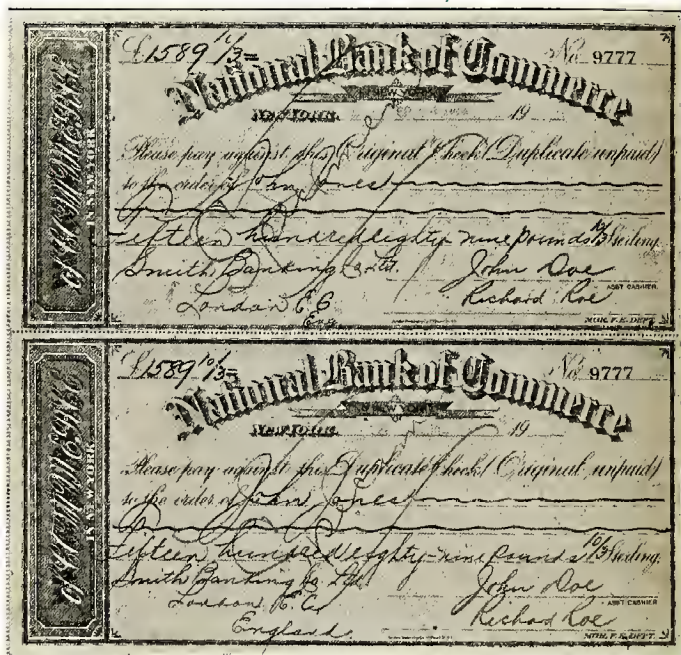 £1589 10/3= No. 9777
National Bank of Commerce
NEW YORK
NEW YORK, 19
Please pay against this Original Check (Duplicate unpaid)
to the order of John Jones
Fifteen hundred eighty nine pounds 10/3 Sterling.
Smith Banking Co. Ltd. John Doe
ASST CASHIER.
London E.C. Richard Roe
Eng. MGR. F. E. DEPT.
IN NEW YORK
£1589 10/3= No. 9777
National Bank of Commerce
NEW YORK
NEW YORK, 19
Please pay against this Duplicate Check (Original unpaid)
to the order of John Jones
Fifteen hundred eighty-nine Pounds 10/3 Sterling.
Smith Banking Co. Ltd. John Doe
ASST CASHIER
London E.C. Richard Roe
England. MGR. F. E. DEPT.
IN NEW YORK